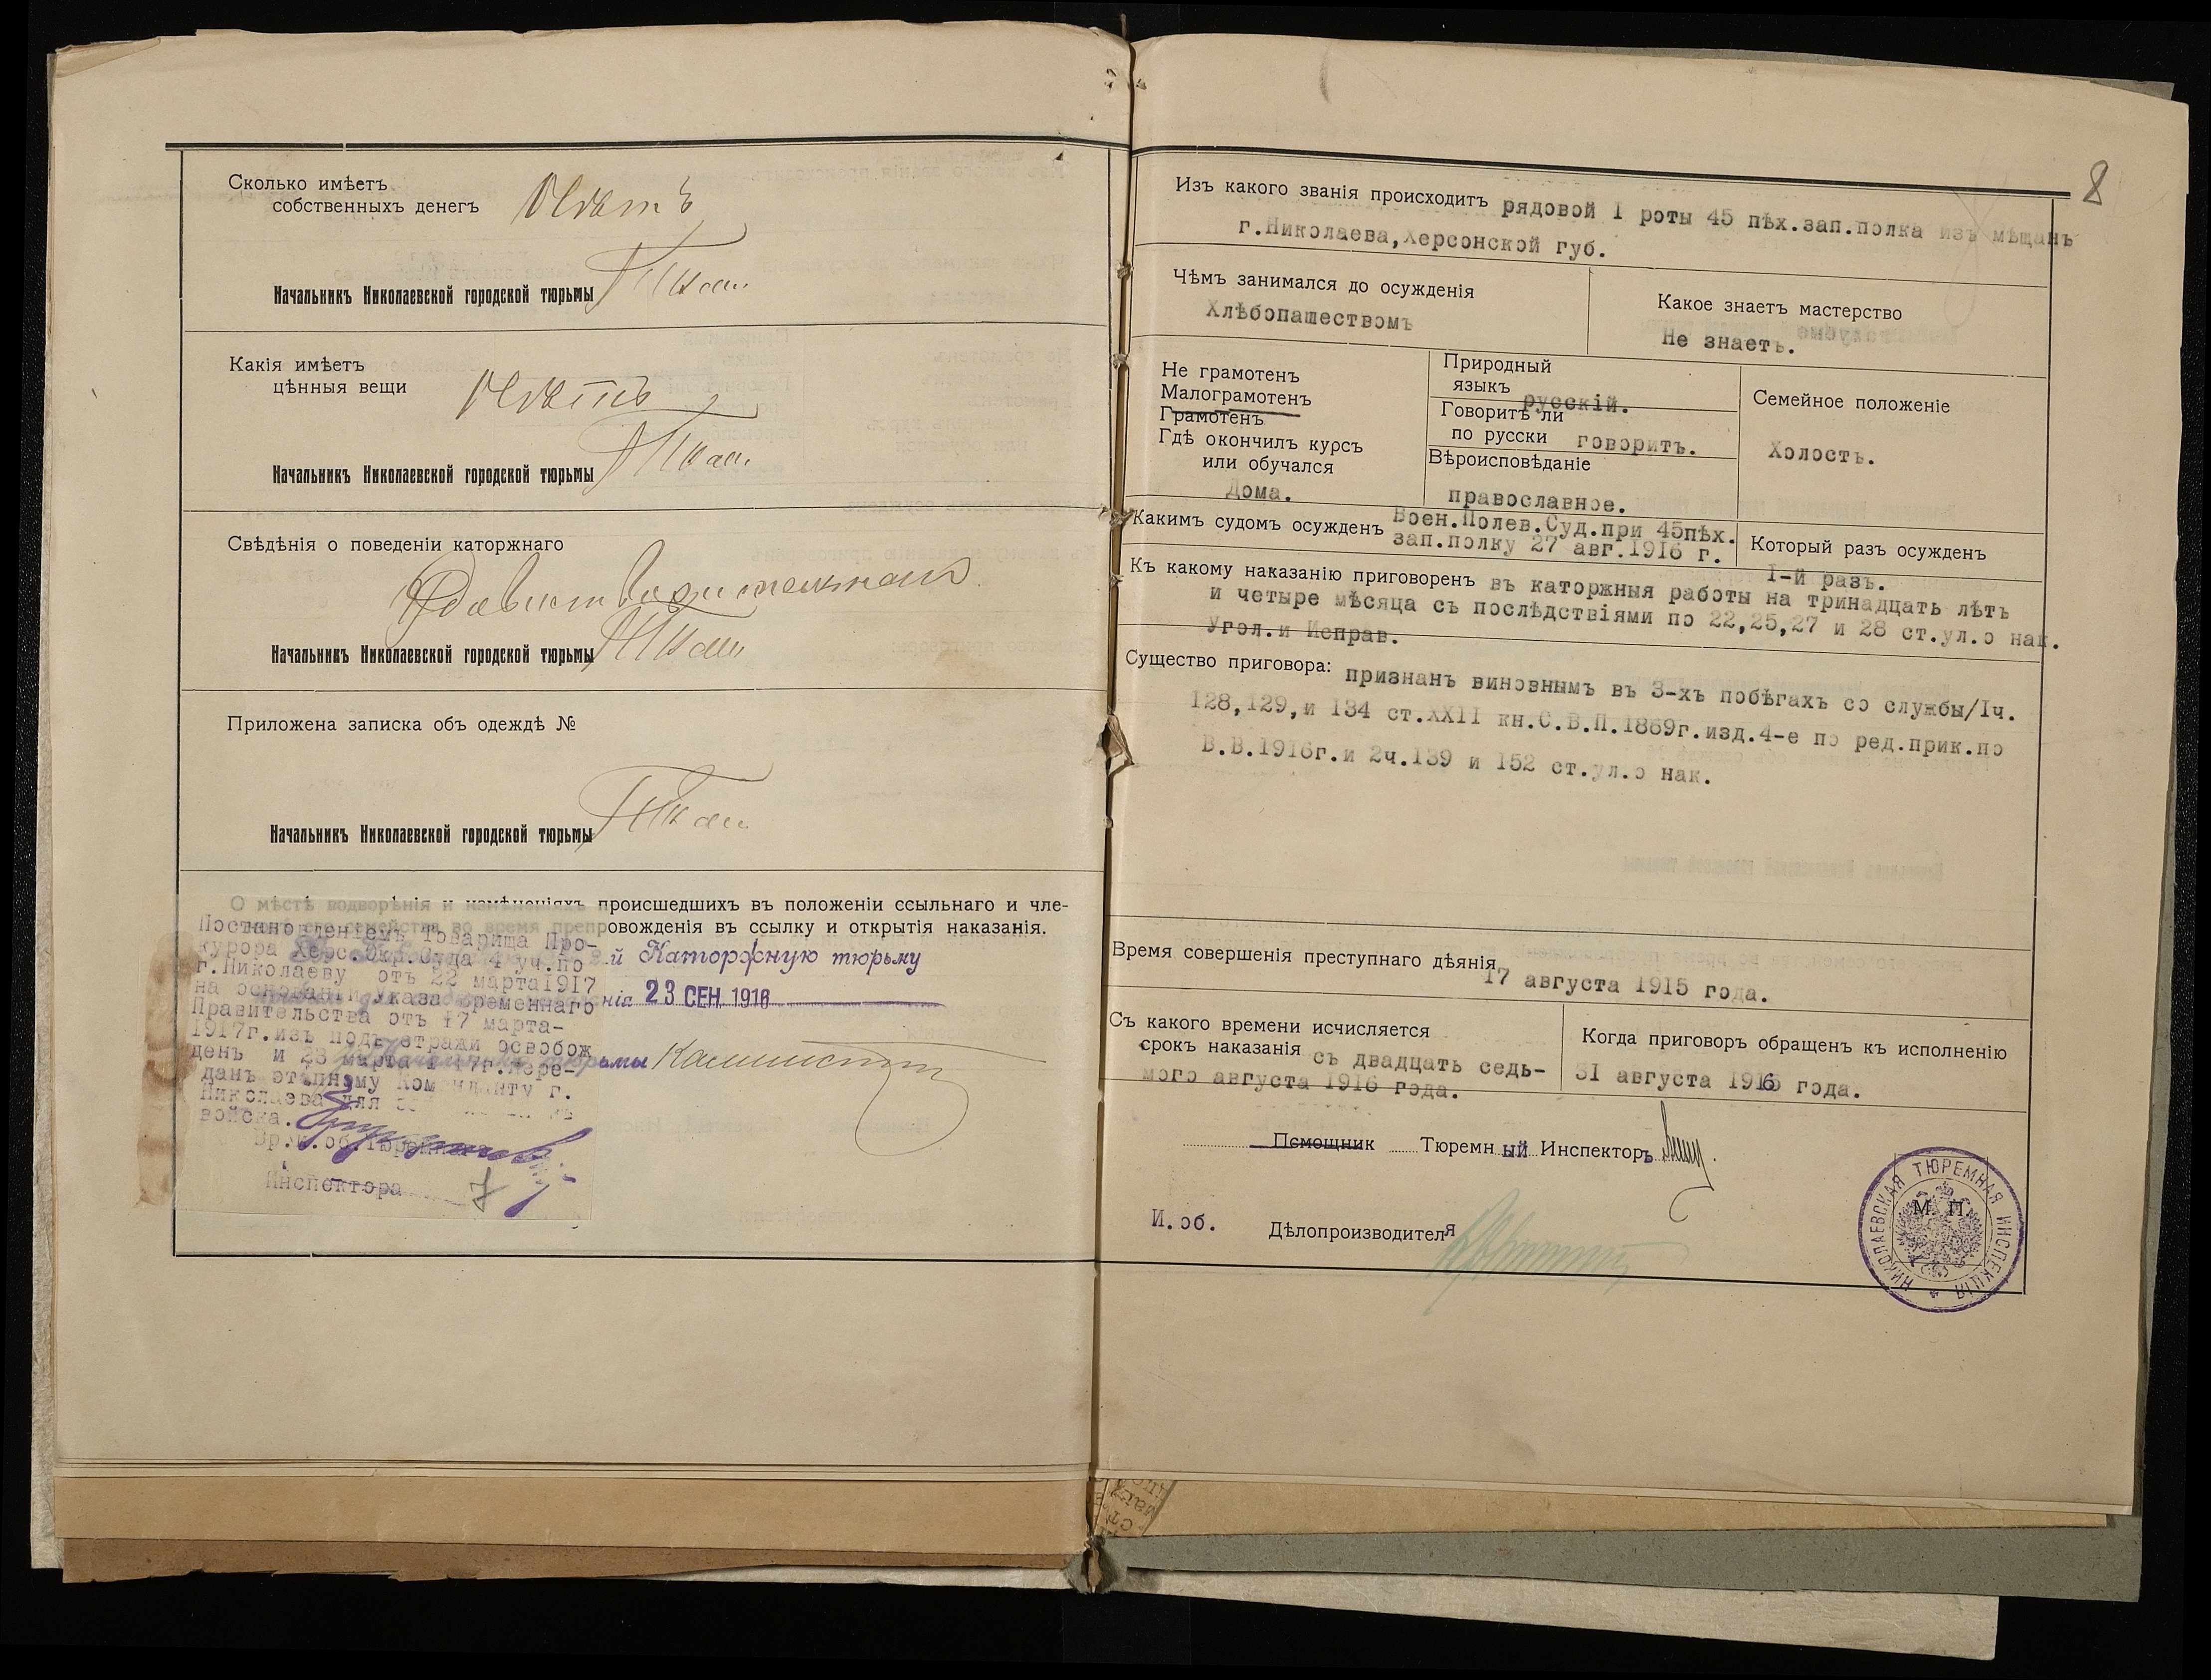 Сколько имѣетъ
собственныхъ денегъ Нѣтъ
Начальникъ Николаевской городской тюрьмы
Какія имѣетъ
цѣнныя вещи Нѣтъ
Начальникъ Николаевской городской тюрьмы
Свѣдѣнія о поведеніи каторжнаго
Начальникъ Николаевской городской тюрьмы
Приложена записка объ одеждѣ №
Начальникъ Николаевской городской тюрьмы
О мѣстѣ водворѣнія и измѣненіяхъ происшедшихъ въ положеніи ссыльнаго и чле-
семейства во время препровожденія въ ссылку и открытія наказанія.
й Каторжную тюрьму
нія 23 СЕН. 1916
Постановленіемъ Товарища Про-
курора Херс.Окр.Суда 4 уч.по
г.Николаеву отъ 22 марта1917
на основаніи Указа Временнаго
Правительства отъ 17 марта-
1917г.изъ подъ стражи освобож
денъ и 23 марта 1917г.пере-
данъ этапному Коменданту г.
Николаева для
войска.
Вр.и.об.Тюремнаго
Инспектора
8
Изъ какого званія происходитъ рядовой I роты 45 пѣх.зап.полка изъ мѣщанъ
г.Николаева,Херсонской губ.
Чѣмъ занимался до осужденія
Хлѣбопашествомъ
Какое знаетъ мастерство
Не знаетъ.
Не грамотенъ
Малограмотенъ
Грамотенъ
Гдѣ окончилъ курсъ
или обучался
Дома.
Природный
языкъ русскій.
Говоритъ ли
по русски говоритъ.
Вѣроисповѣданіе
православное.
Семейное положеніе
Холостъ.
Какимъ судомъ осужденъ Воен.Полев.Суд.при 45пѣх.
зап.полку 27 авг.1916 г.
Который разъ осужденъ
I-й разъ.
Къ какому наказанію приговоренъ въ каторжныя работы на тринадцать лѣтъ
и четыре мѣсяца съ послѣдствіями по 22,25,27 и 28 ст.ул.о нак.
Угол.и Исправ.
Существо приговора: признанъ виновнымъ въ 3-хъ побѣгахъ со службы/Iч.
128,129,и 134 ст.XXII кн.С.В.П.1869г.изд.4-е по ред.прик.по
В.В.1916г.и 2ч.139 и 152 ст.ул.о нак.
Время совершенія преступнаго дѣянія 17 августа 1915 года.
Съ какого времени исчисляется
срокъ наказанія съ двадцать седь-
мого августа 1916 года.
Когда приговоръ обращенъ къ исполненію
31 августа 1916 года.
Помощникъ Тюремный Инспекторъ
И.об. Дѣлопроизводителя
М. П.
НИКОЛАЕВСКАЯ ТЮРЕМНАЯ ИНСПЕКЦІЯ